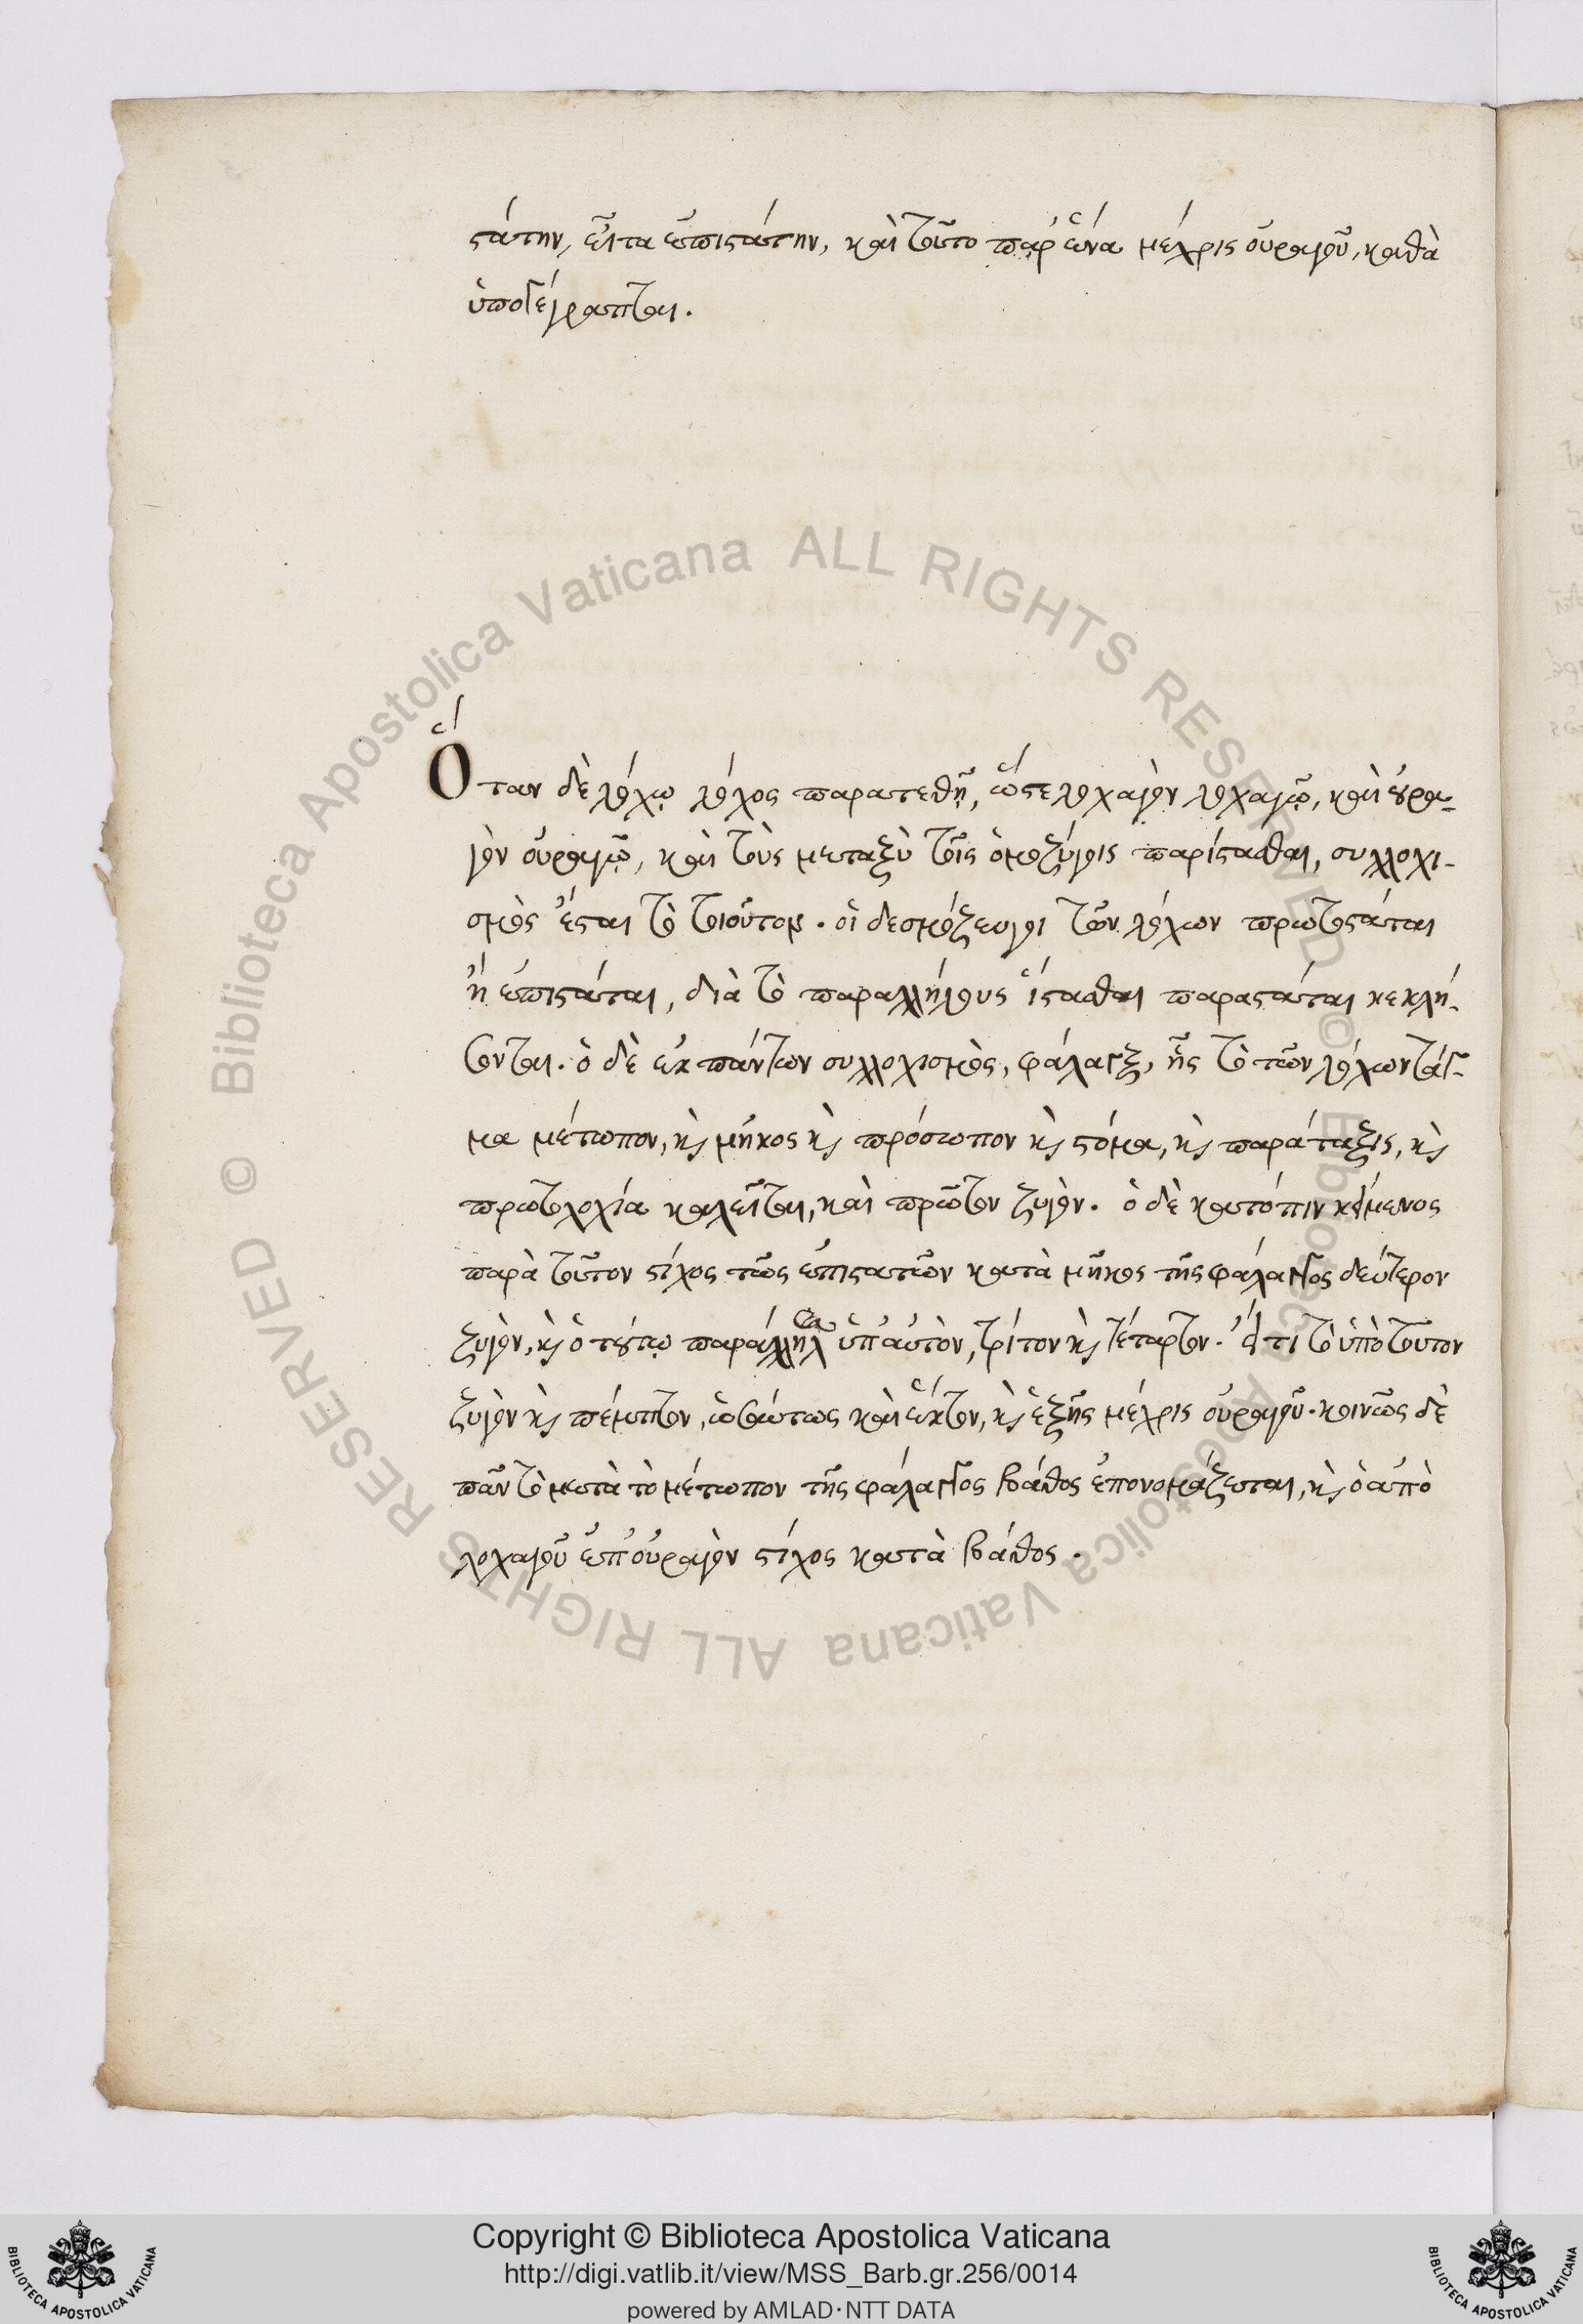 στάτην, εἶτα ἐπιστάτην, καὶ τοῦτο παρ' ἕνα μέχρις οὐραγοῦ, καθὰ
ὑπογέγραπται.
Ὅταν δὲ λόχῳ λόχος παρατεθῇ, ὥστε λοχαγὸν λοχαγῷ, καὶ οὐρα-
γὸν οὐραγῷ, καὶ τοὺς μεταξὺ τοῖς ὁμοζύγοις παρίστασθαι, συλλοχι-
σμὸς ἔσται τὸ τοιοῦτον. οἱ δὲ ὁμόζευγοι τῶν λόχων πρωτοστάται
ἢ ἐπιστάται, διὰ τὸ παραλλήλους ἵστασθαι παραστάται κεκλή-
σονται. ὁ δὲ ἐκ πάντων συλλοχισμὸς, φάλαγξ, ἧς τὸ τῶν λόχων τάγ-
μα μέτωπον, καὶ μῆκος καὶ πρόσωπον καὶ στόμα, καὶ παράταξις, καὶ
πρωτολοχία καλεῖται, καὶ πρῶτον ζυγόν. ὁ δὲ κατόπιν κείμενος
παρὰ τοῦτον στίχος τῶς ἐπιστατῶν κατὰ μῆκος τῆς φάλαγγος δεύτερον
ζυγὸν, καὶ ὁ τούτῳ παράλληλος ὑπ' αὐτὸν, τρίτον καὶ τέταρτον. ἔτι τὸ ὑπὸ τουτον
ζυγὸν καὶ πέμπτον, ὡσαύτως καὶ ἕκτον, καὶ ἑξῆς μέχρις οὐραγοῦ. κοινῶς δὲ
πᾶν τὸ μετὰ τὸ μέτωπον τῆς φάλαγγος βάθος ἐπονομάζεται, καὶ ὁ ἀπὸ
λοχαγοῦ ἐπ' οὐραγὸν στίχος κατὰ βάθος.
© Biblioteca Apostolica Vaticana ALL RIGHTS RESERVED
© Biblioteca Apostolica Vaticana ALL RIGHTS RESERVED
Copyright © Biblioteca Apostolica Vaticana
http://digi.vatlib.it/view/MSS_Barb.gr.256/0014
powered by AMLAD·NTT DATA
BIBLIOTECA APOSTOLICA VATICANA
BIBLIOTECA APOSTOLICA VATICANA